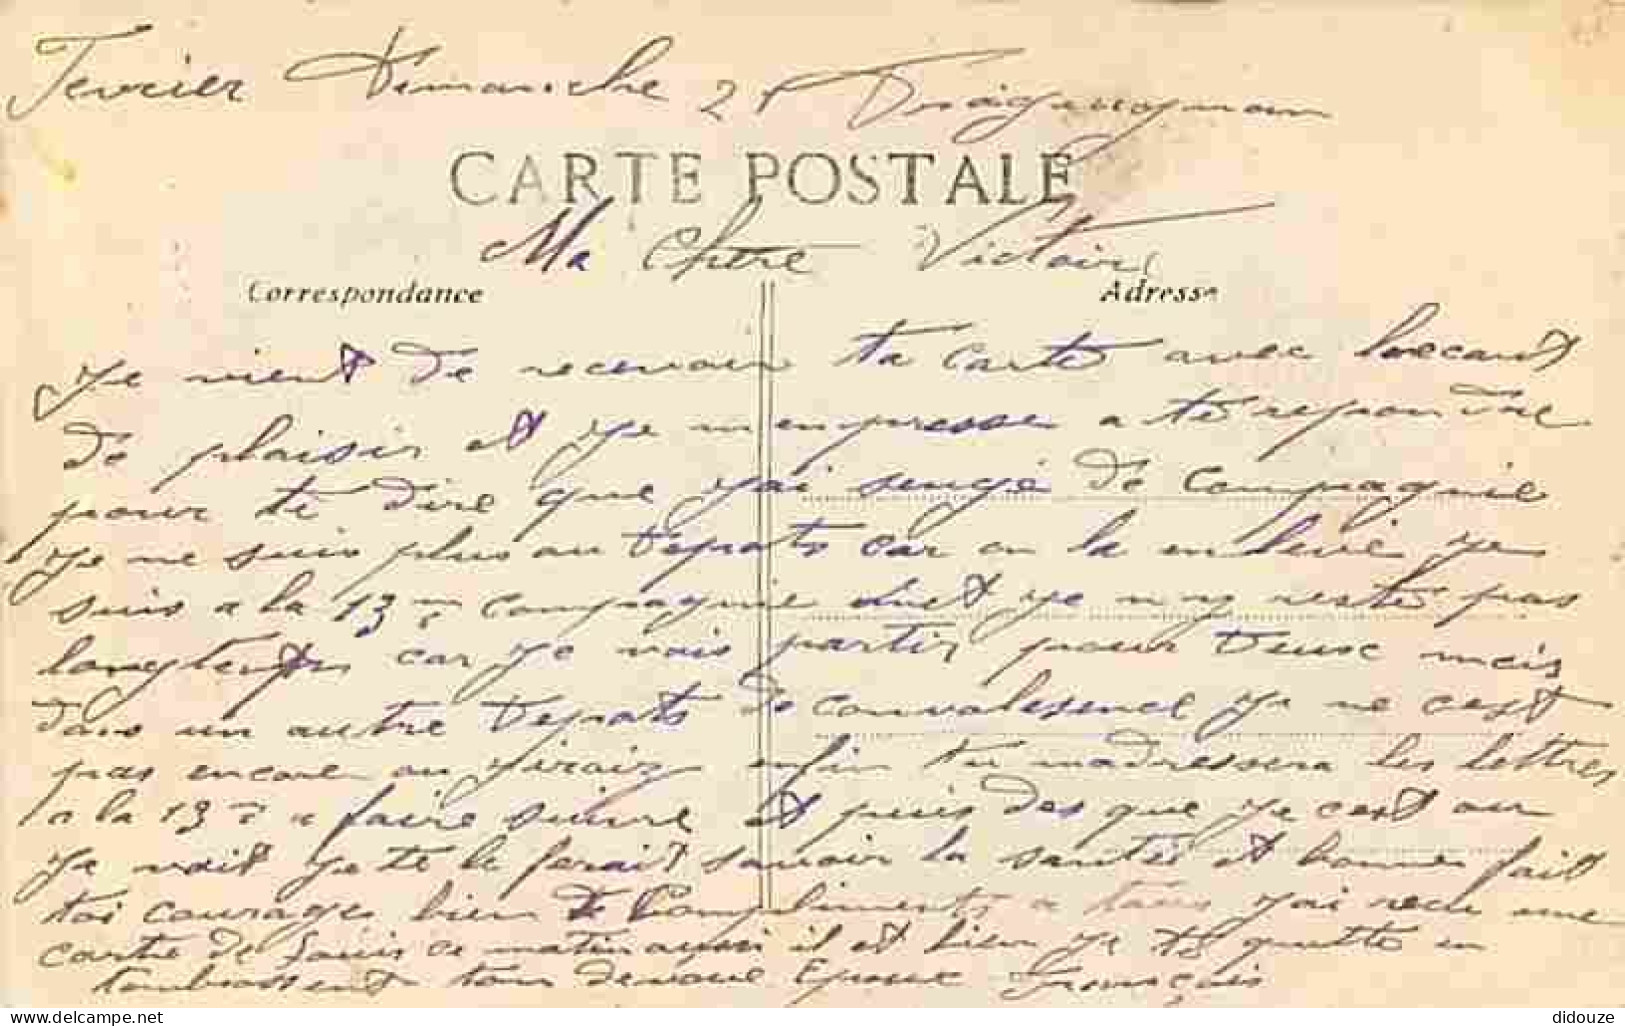 Fevrier Dimanche 21 Draguegnan
CARTE POSTALE
Ma Chere Victoire
Correspondance
Adresse
Je vient de recevoir ta carte avec
de plaisir et je m'empresse a te repondre
pour te dire que j'ai change de Compagnie
je ne suis plus au depots car on la enlevé je
suis a la 13me Compagnie et je n'y reste pas
longtemps car je vais partir pour deux mois
dans un autre depots de convalesence je ne cest
pas encore ou j'irait enfin tu madressera les lettres
a la 13e a faire suivre et puis des que je cest ou
je vait je te le ferait savoir la santée et bonne fait
toi courage bien de Compliments a tous j'ai recu une
carte de Louis ce matin aussi il et bien je te quitte en
tembrassent ton devoué Epoux François
delcampe.net
didouze